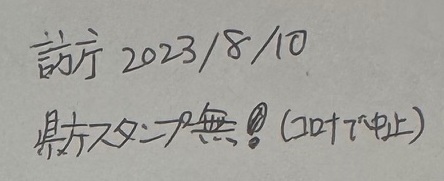 訪庁 2023/8/10
県庁スタンプ無! (コロナで中止)